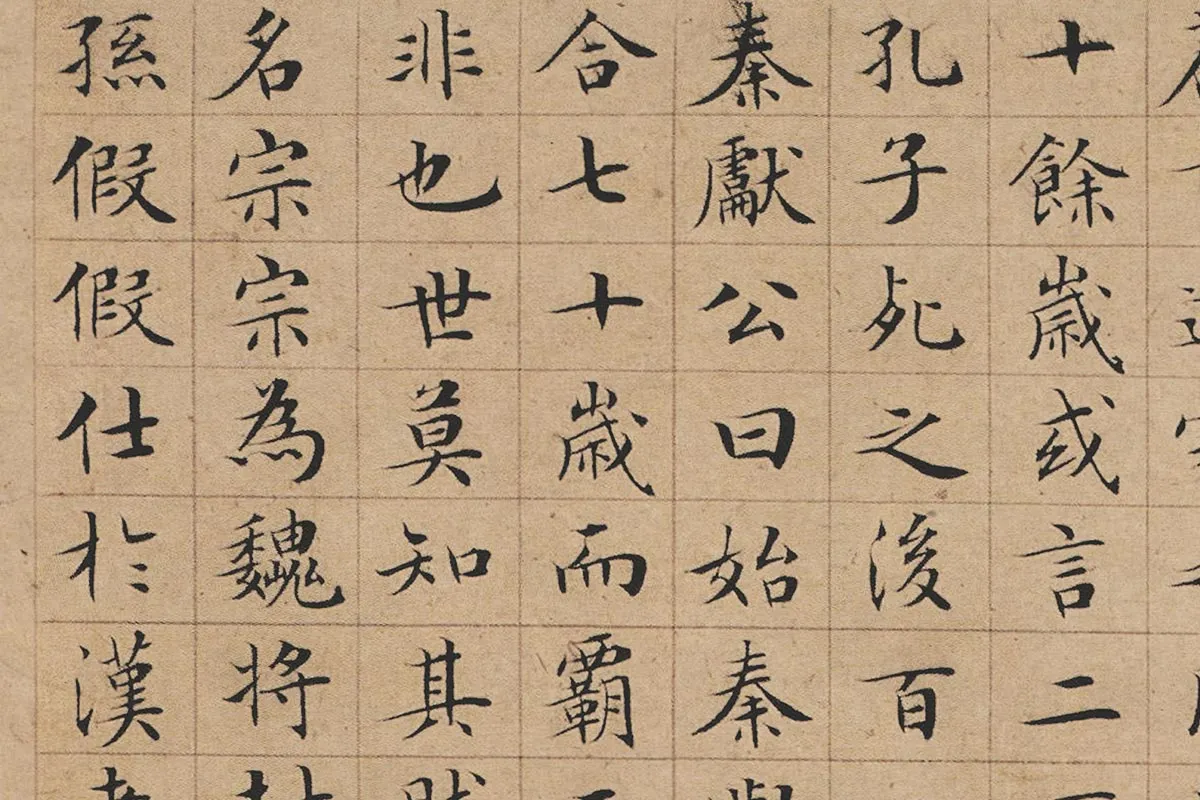 十餘歲或言二
孔子死之後百
秦獻公曰始秦
合七十歲而霸
非也世莫知其
名宗宗為魏將
孫假假仕於漢